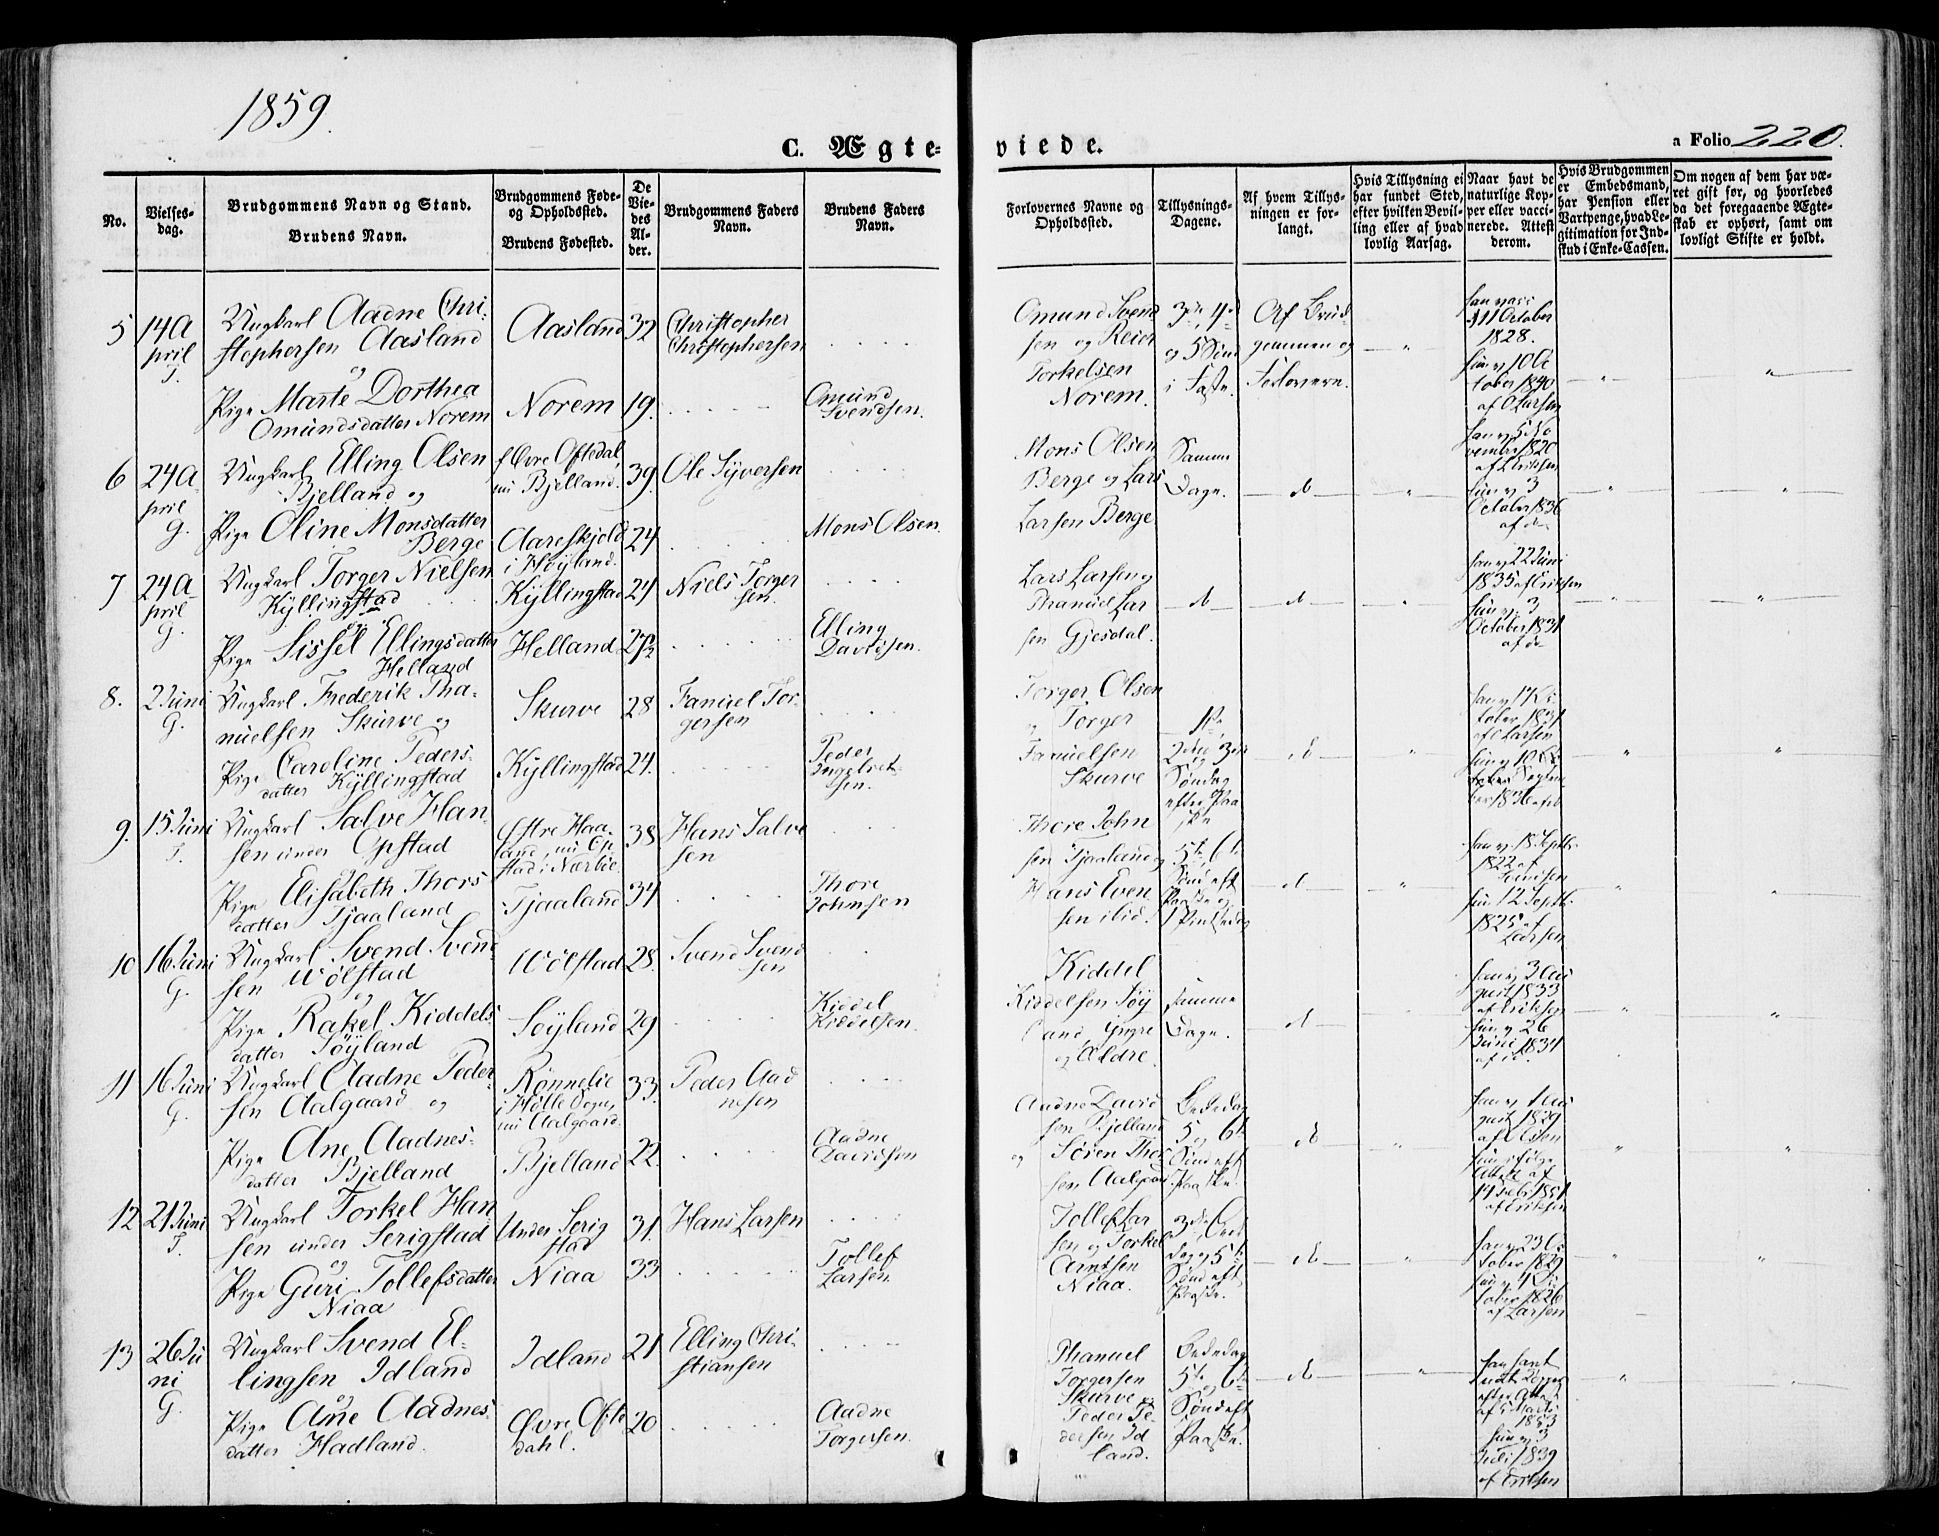 1859.
C. Ægte- viede.
a Folio 220.
No.
Vielses-
dag.
Brudgommens Navn og Stand.
Brudens Navn.
Brudgommens Føde-
og Opholdssted.
Brudens Fødested.
De
Vie-
des
Al-
der.
Brudgommens Faders
Navn.
Brudens Faders
Navn.
Forlovernes Navne og
Opholdssted.
Tillysnings-
Dagene.
Af hvem Tillys-
ningen er for-
langt.
Hvis Tillysning ei
har fundet Sted,
efter hvilken Bevil-
ling eller af hvad
lovlig Aarsag.
Naar havt de
naturlige Kop-
per eller vacci-
nerede. Attest
derom.
Hvis Brudgommen
er Embedsmand,
har Pension eller
Vartpenge, hvad Le-
gitimation for Ind-
skud i Enke-Cassen.
Om nogen af dem har væ-
ret gift før, og hvorledes
da det foregaaende Ægte-
skab er ophørt, samt om
lovligt Skifte er holdt.
5
14 A
pril
T.
Ungkarl Aadne Chri-
stophersen Aasland
og
Pige Marte Dorthea
Omundsdatter Norem
Aasland
Norem
32
19.
Christopher
Christophersen
Omund
Svendsen.
Omund Svend
sen og Reier
Torkelsen
Norem.
3die, 4de
og 5 Sønd
i Faste.
Af Brud-
gommen og
Forloverne.
October
1828.
tober 1840
af Larsen
6
24 A
pril
G.
Ungkarl Elling Olsen
Bjelland og
Pige Oline Monsdatter
Berge
f Øvre Oftedal,
nu Bjelland.
Aareskjold
i Høyland.
39.
24
Ole Syversen
Mons Olsen.
Mons Olsen
Berge og Lars
Larsen Berge
Samme
Dage.
do
vember 1820
af Eriksen
October 1836
af do
7
24 A
pril
G.
Ungkarl Torger Nielsen
Kyllingstad
og
Pige Sissel Ellingsdatter
Helland
Kyllingstad
Helland
24
27½
Niels Torger
sen.
Elling
Davidsen.
Lars Larsen og
Thanuel Lar
sen Gjesdal.
do
do
22 Juni
1835 af Eriksen
October 1831
af do
8.
2 Juni
G.
Ungkarl Frederik Tha-
nuelsen Skurve og
Pige Caroline Peders-
datter Kyllingstad
Skurve
Kyllingstad
28
24.
Fanuel Tor-
gersen
Peder
Ingebret
sen.
Torger Olsen
og Torger
Fanuelsen
Skurve
1ste
2den og 3die
Søndag
efter Paa
ske
do
tober 1831
af Larsen
9.
15 Juni
T.
Ungkarl Salve Han-
sen under Opstad
og
Pige Elisabeth Thors-
datter Tjaaland
Østre Haa-
land, nu Op
stad i Nærbøe.
Tjaaland
38
34
Hans Salve
sen
Thore
Johnsen
Thore John
sen Tjaaland og
Hans Even
sen ibid.
5te, 6te
Sønd. eft
Paaske og
1 Pintsedag
do
18 Septb.
1822 af
12 Septb.
1825 af
Larsen
10
16 Juni
G.
Ungkarl Svend Svend
sen Wølstad
og
Pige Rakel Kiddels
datter Søyland
Wølstad
Søyland
28.
29
Svend Svend
sen
Kiddel
Kiddelsen.
Kiddel
Kiddelsen Søy
land, Yngre
og Ældre.
samme
Dage.
do
3 Au
gust 1833
af Eriksen
26
Juni 1834
af id.
11
16 Juni
G.
Ungkarl Aadne Peder-
sen Aalgaard og
Pige Ane Aadnes-
datter Bjelland
Rønnelie
i Hølle Sogn,
nu Aalgaard.
Bjelland
33.
22.
Peder Aad
nesen
Aadne
Davidsen
Aadne David
sen Bjelland
og Søren Thor
sen Aalgard
Bededag
5 og 6te
Sønd eft
Paaske.
do
1 Au
gust 1829
af Olsen
ifølge
Attest af
af Eriksen
12
21 Juni
T.
Ungkarl Torkel Han
sen under Serigstad
og
Pige Guri Tollefsdatter
Niaa
Under Serig
stad
Niaa
31.
33
Hans Larsen
Tollef
Larsen
Tollef Lar
sen og Torkel
Arntsen
Niaa.
dag og 5te
Sønd eft
Paaske.
do
tober 1829
tober 1826
af Larsen
13
26 Ju
ni
G.
Ungkarl Svend El-
lingsen Idland
og
Pige Ane Aadnes-
datter Hadland.
Idland
Øvre Ofte
dahl.
21
20
Elling Chri-
stiansen
Aadne
Torgersen.
Thanuel
Torgersen
Skurve og
Peder Pe-
dersen Id
land.
Bededag
5te og 6te
Sønd eft
Paaske.
do
efter Attest
1853
Juli 1839
af Eriksen